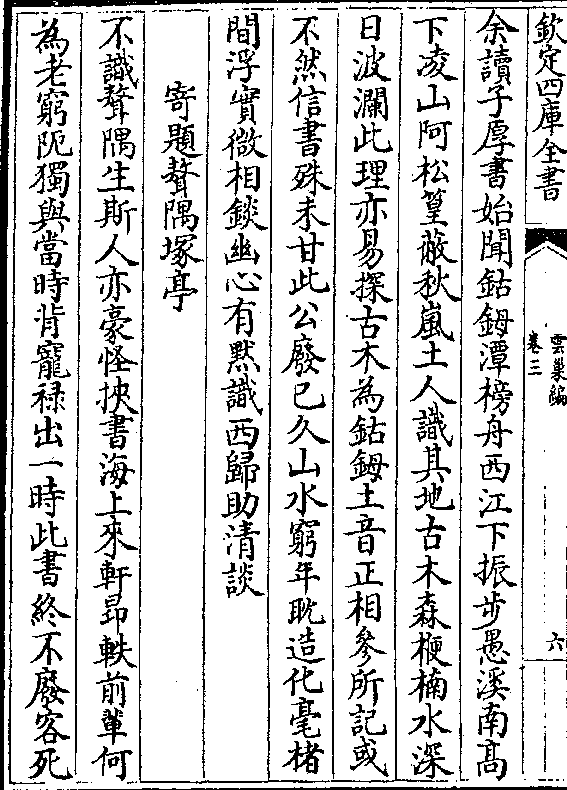 欽定四庫全書
雲巢編
卷三
六
余讀子厚書始聞鈷鉧潭榜舟西江下振步愚溪南髙
下凌山阿松篁蔽秋嵐土人識其地古木森楩楠水深
日波瀾此理亦易探古木為鈷鉧土音正相參所記或
不然信書殊未甘此公廢已久山水窮年耽造化毫楮
間浮實微相錟幽心有黙識西歸助清談
寄題聱隅塚亭
不識聱隅生斯人亦豪怪挾書海上來軒昂軼前輩何
為老窮阨獨與當時背寵禄出一時此書終不廢客死